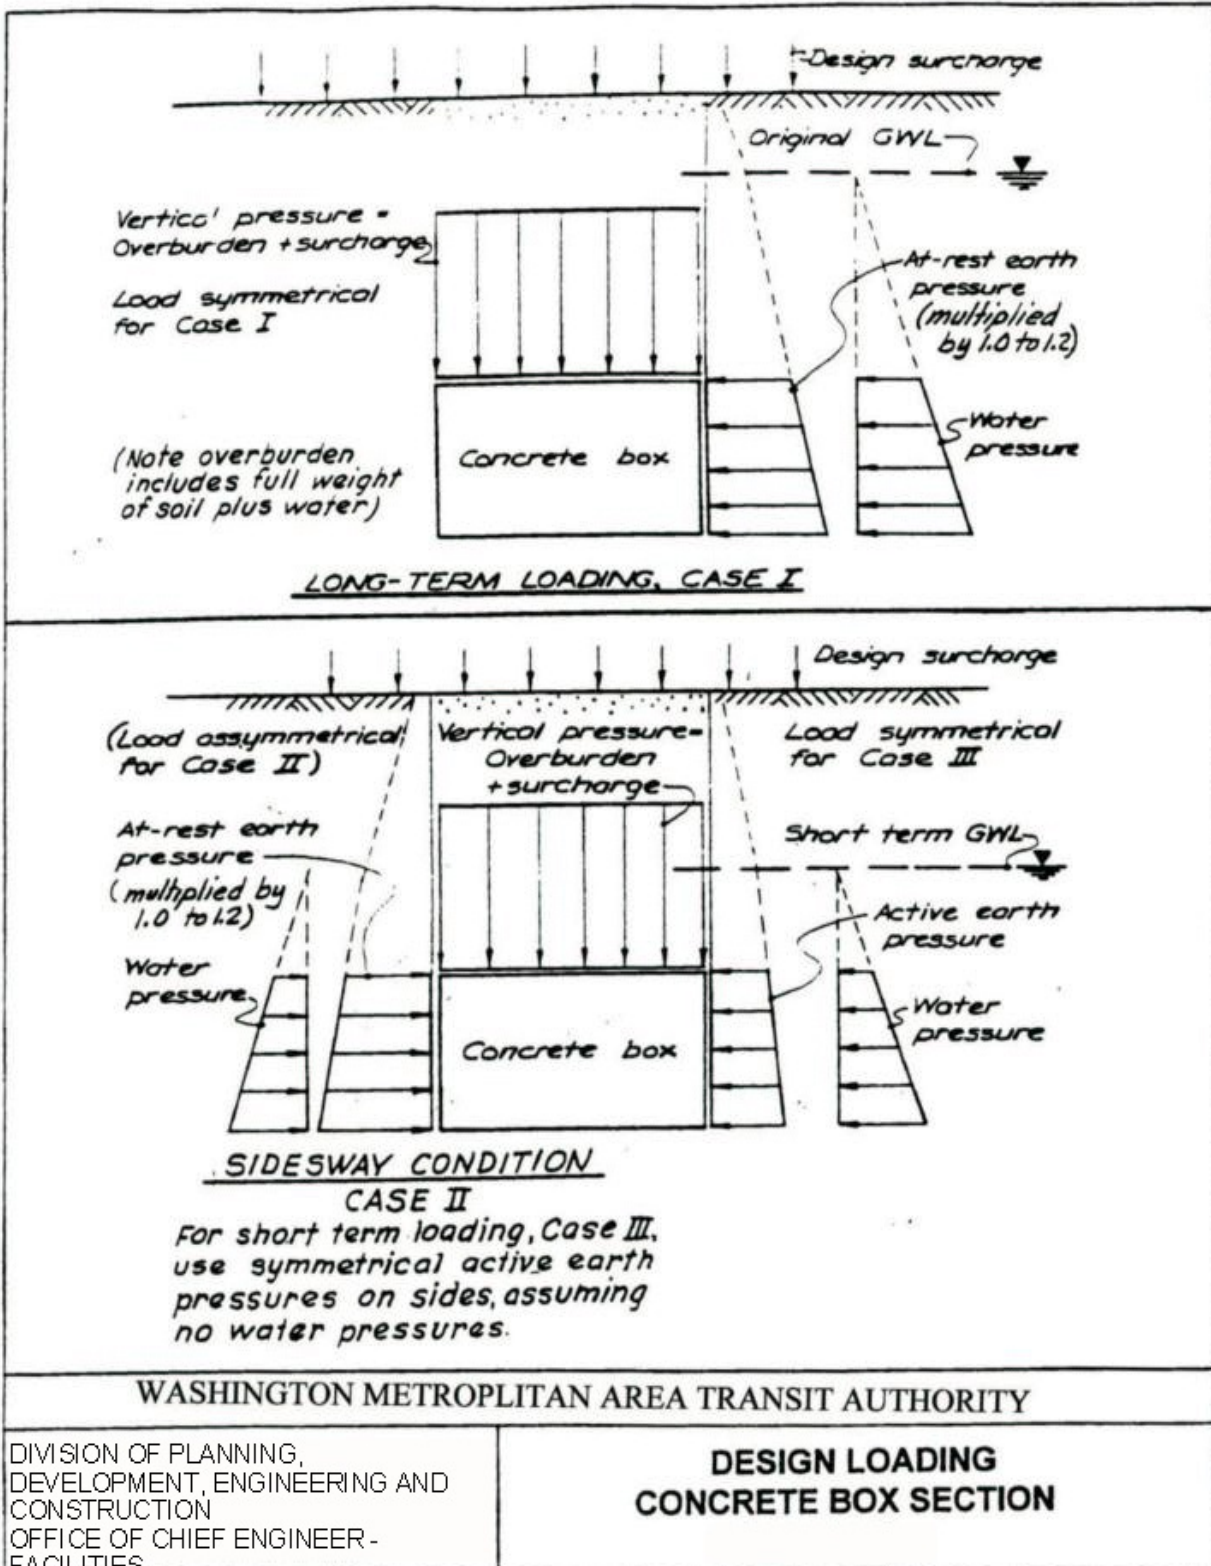 Design surcharge
Original GWL
Vertical pressure =
Overburden + surcharge
Load symmetrical
for Case I
At-rest earth
pressure
(multiplied
by 1.0 to 1.2)
(Note overburden
includes full weight
of soil plus water)
Concrete box
Water
pressure
LONG-TERM LOADING, CASE I
Design surcharge
(Load assymmetrical
for Case II)
Vertical pressure=
Overburden
+surcharge
Load symmetrical
for Case III
At-rest earth
pressure
(mulhplied by
1.0 to 1.2)
Short term GWL
Active earth
pressure
Water
pressure
Concrete box
Water
pressure
SIDESWAY CONDITION
CASE II
For short term loading, Case III,
use symmetrical active earth
pressures on sides, assuming
no water pressures.
WASHINGTON METROPLITAN AREA TRANSIT AUTHORITY
DIVISION OF PLANNING,
DEVELOPMENT, ENGINEERING AND
CONSTRUCTION
OFFICE OF CHIEF ENGINEER -
FACILITIES
DESIGN LOADING
CONCRETE BOX SECTION